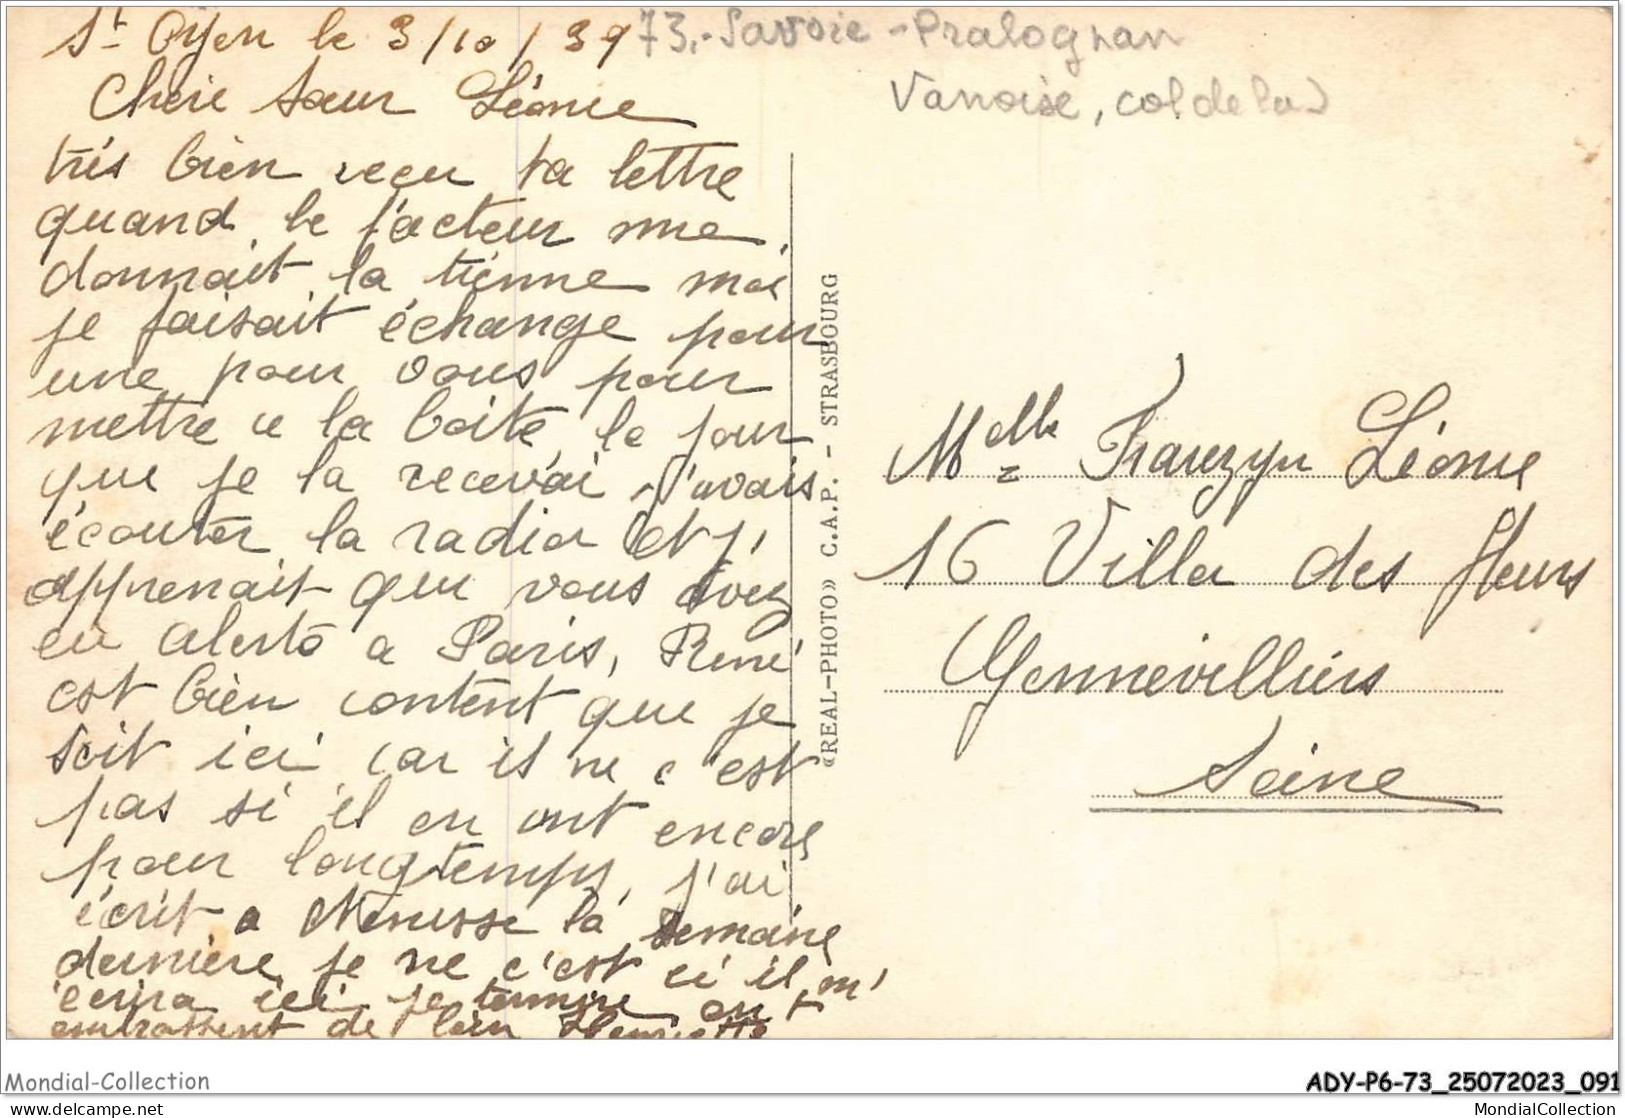 St Oyen le 3/10/39
Chère Sœur Léonie
très bien reçu ta lettre
quand le facteur me
donnait la tienne moi
je faisait échange pour
une pour vous pour
mettre a la boite, le jour
que je la recevai, j'avais
écouter la radio et j'
apprenait que vous avez
eu alerte a Paris, René
est bien content que je
soit ici car il ne c'est
pas si il en ont encore
pour longtemps, j'ai
écrit a la semaine
dernière, je ne c'est ci il m'
écrira ici je termine en t
embrassent de loin Henriette
73.-Savoie-Pralognan
Vanoise, col de la)
«REAL-PHOTO» C.A.P. - STRASBOURG
Melle Léonie
16 Villa des fleurs
Gennevilliers
Seine
Mondial-Collection
ADY-P6-73_25072023_091
delcampe.net
MondialCollection